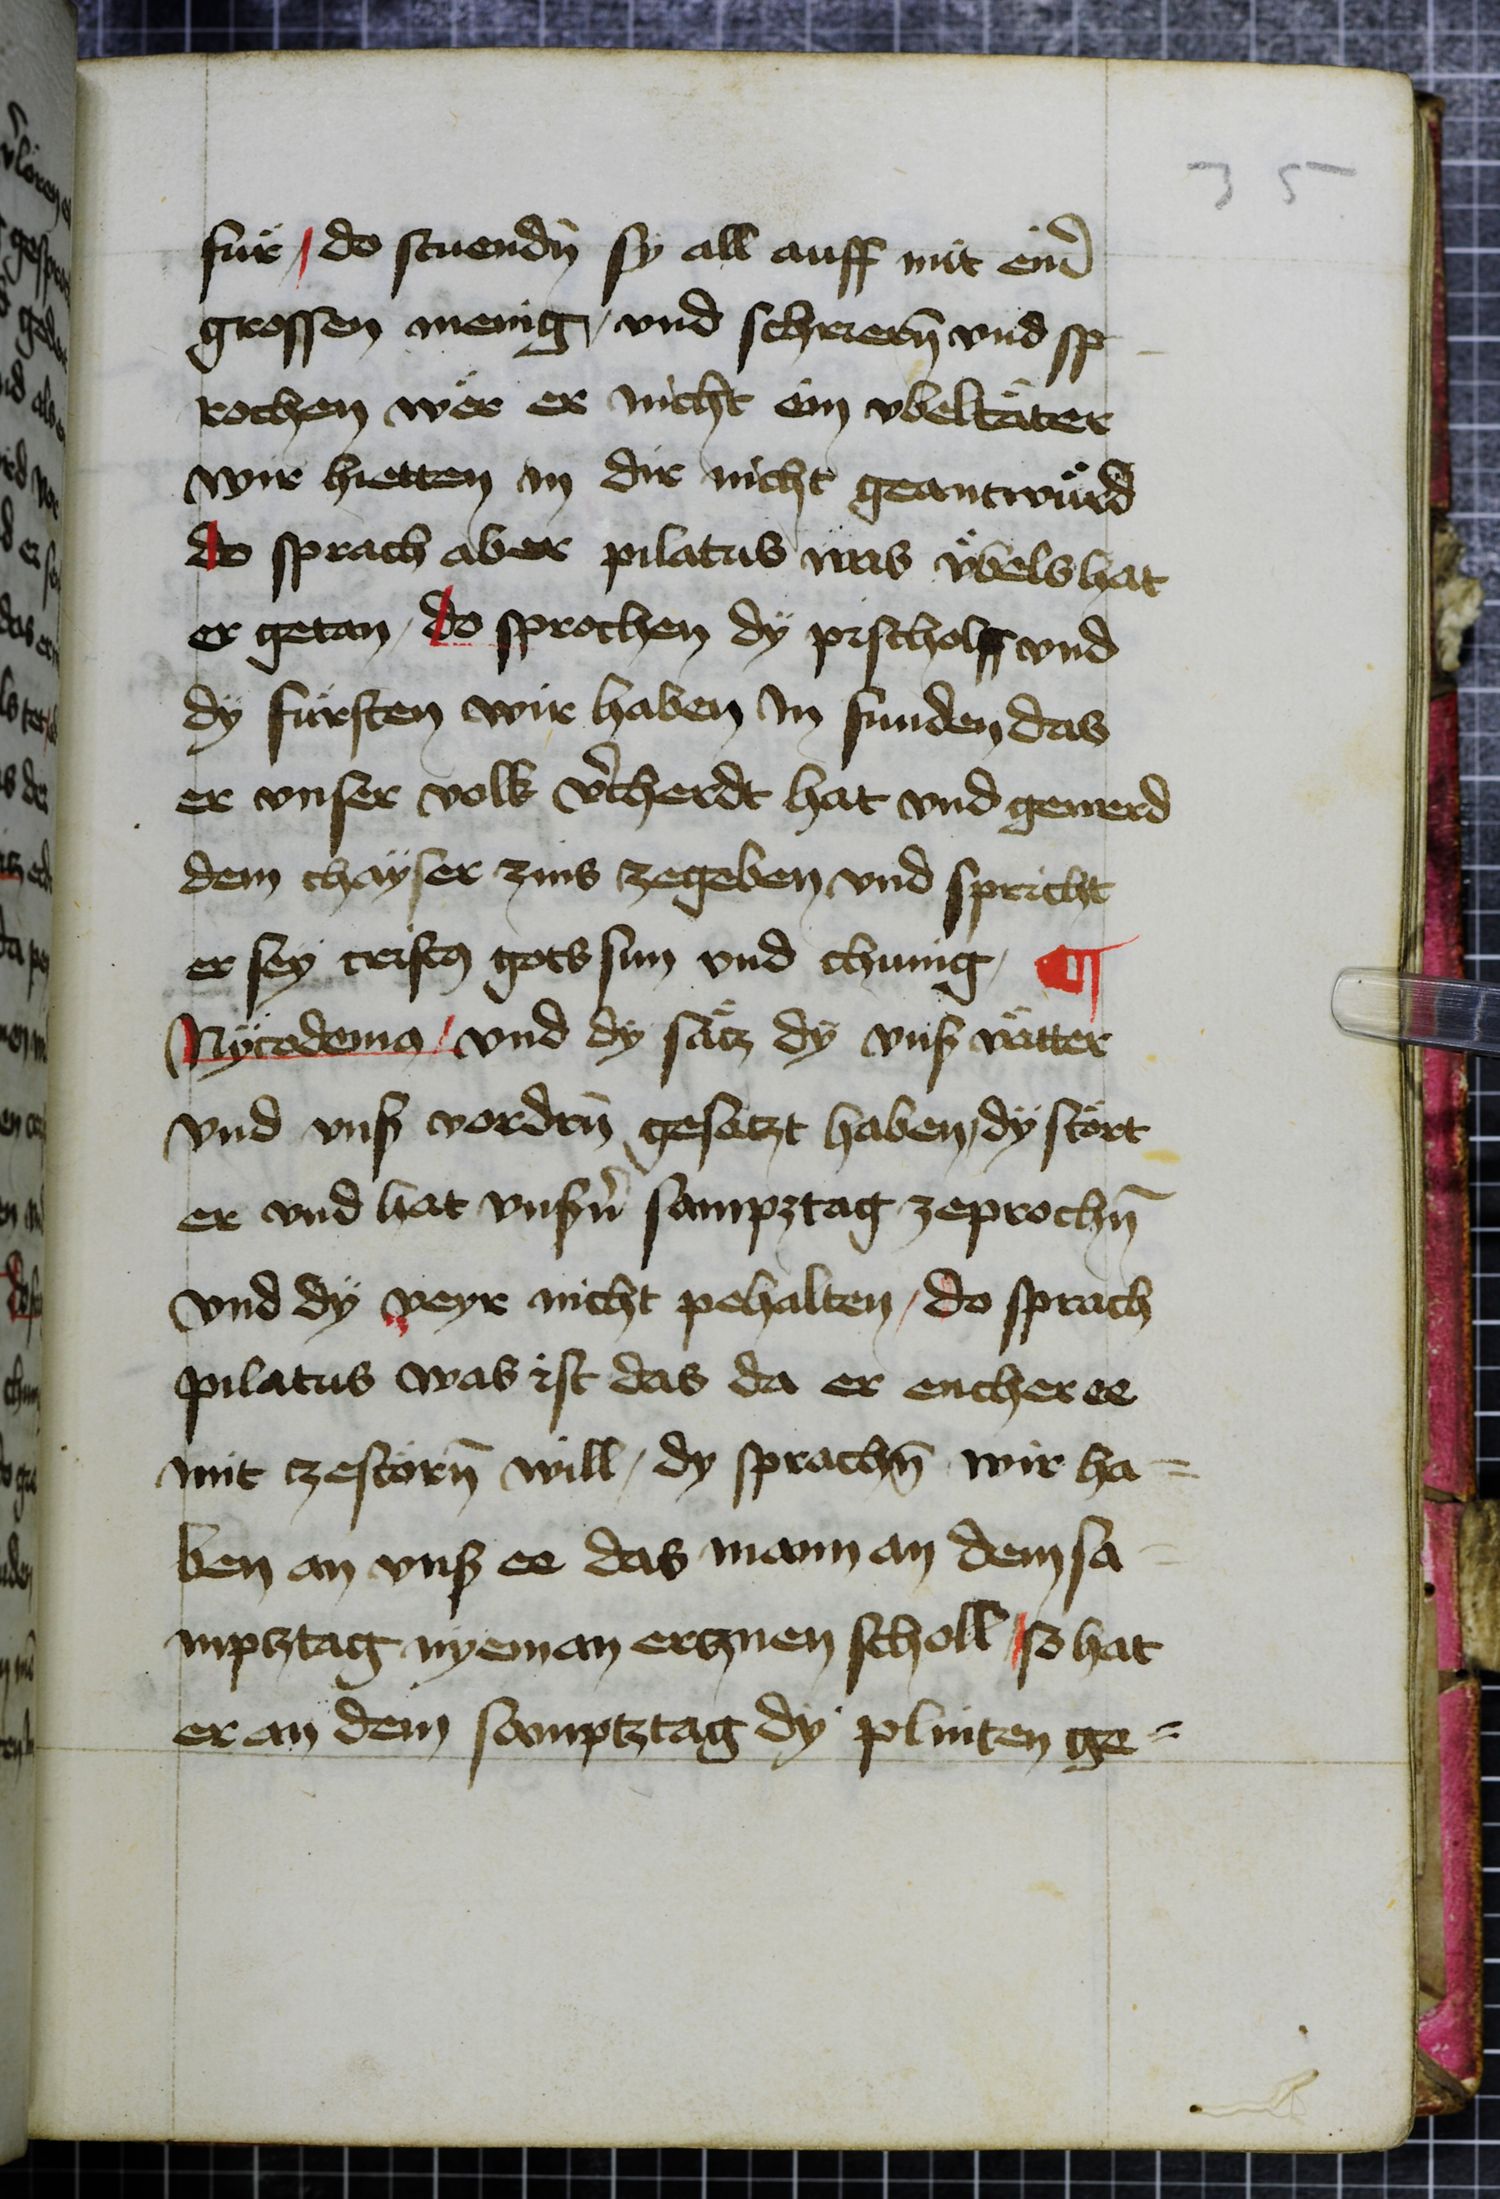 35
für / do stuendn̄ sy all auff mit ein̄
grossen menig / vnd schrieren̄ vnd sp-
rochen wër er nicht ein vbeltäter
wir hietten in dir nicht geantwürd
do sprach aber pilatus was v̈bels hat
er getan / do sprochen dÿ pischolff vnd
dÿ fürsten wir haben in funden das
er vnser volk v̄cherdt hat vnd gewerd
dem chaÿser zins zegeben vnd spricht
er seÿ cristꝯ gots sun vnd chunig / ¶
Nÿcodemꝯ / vnd dÿ sätz dÿ vnß vätter
vnd vnß vordrn̄ gesatzt haben / dÿ stört
er vnd hat vnßn̄ sampztag zeprochn̄
vnd dÿ veyr nicht pehalten / do sprach
pilatus was ist das da er eucher ee
mit zestörn̄ will / dy sprachn̄ wir ha=
ben an vnß ee das mann an dem sa-
mptztag nyeman ertznen scholl / so hat
er an dem samptztag dÿ plinten ge=